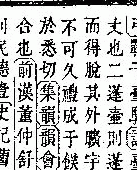 丈也二蓬壷則蓬
而得脫其外曠宇
不可久禮成于俟
於悉切集韻韻會
合也前漢董仲舒